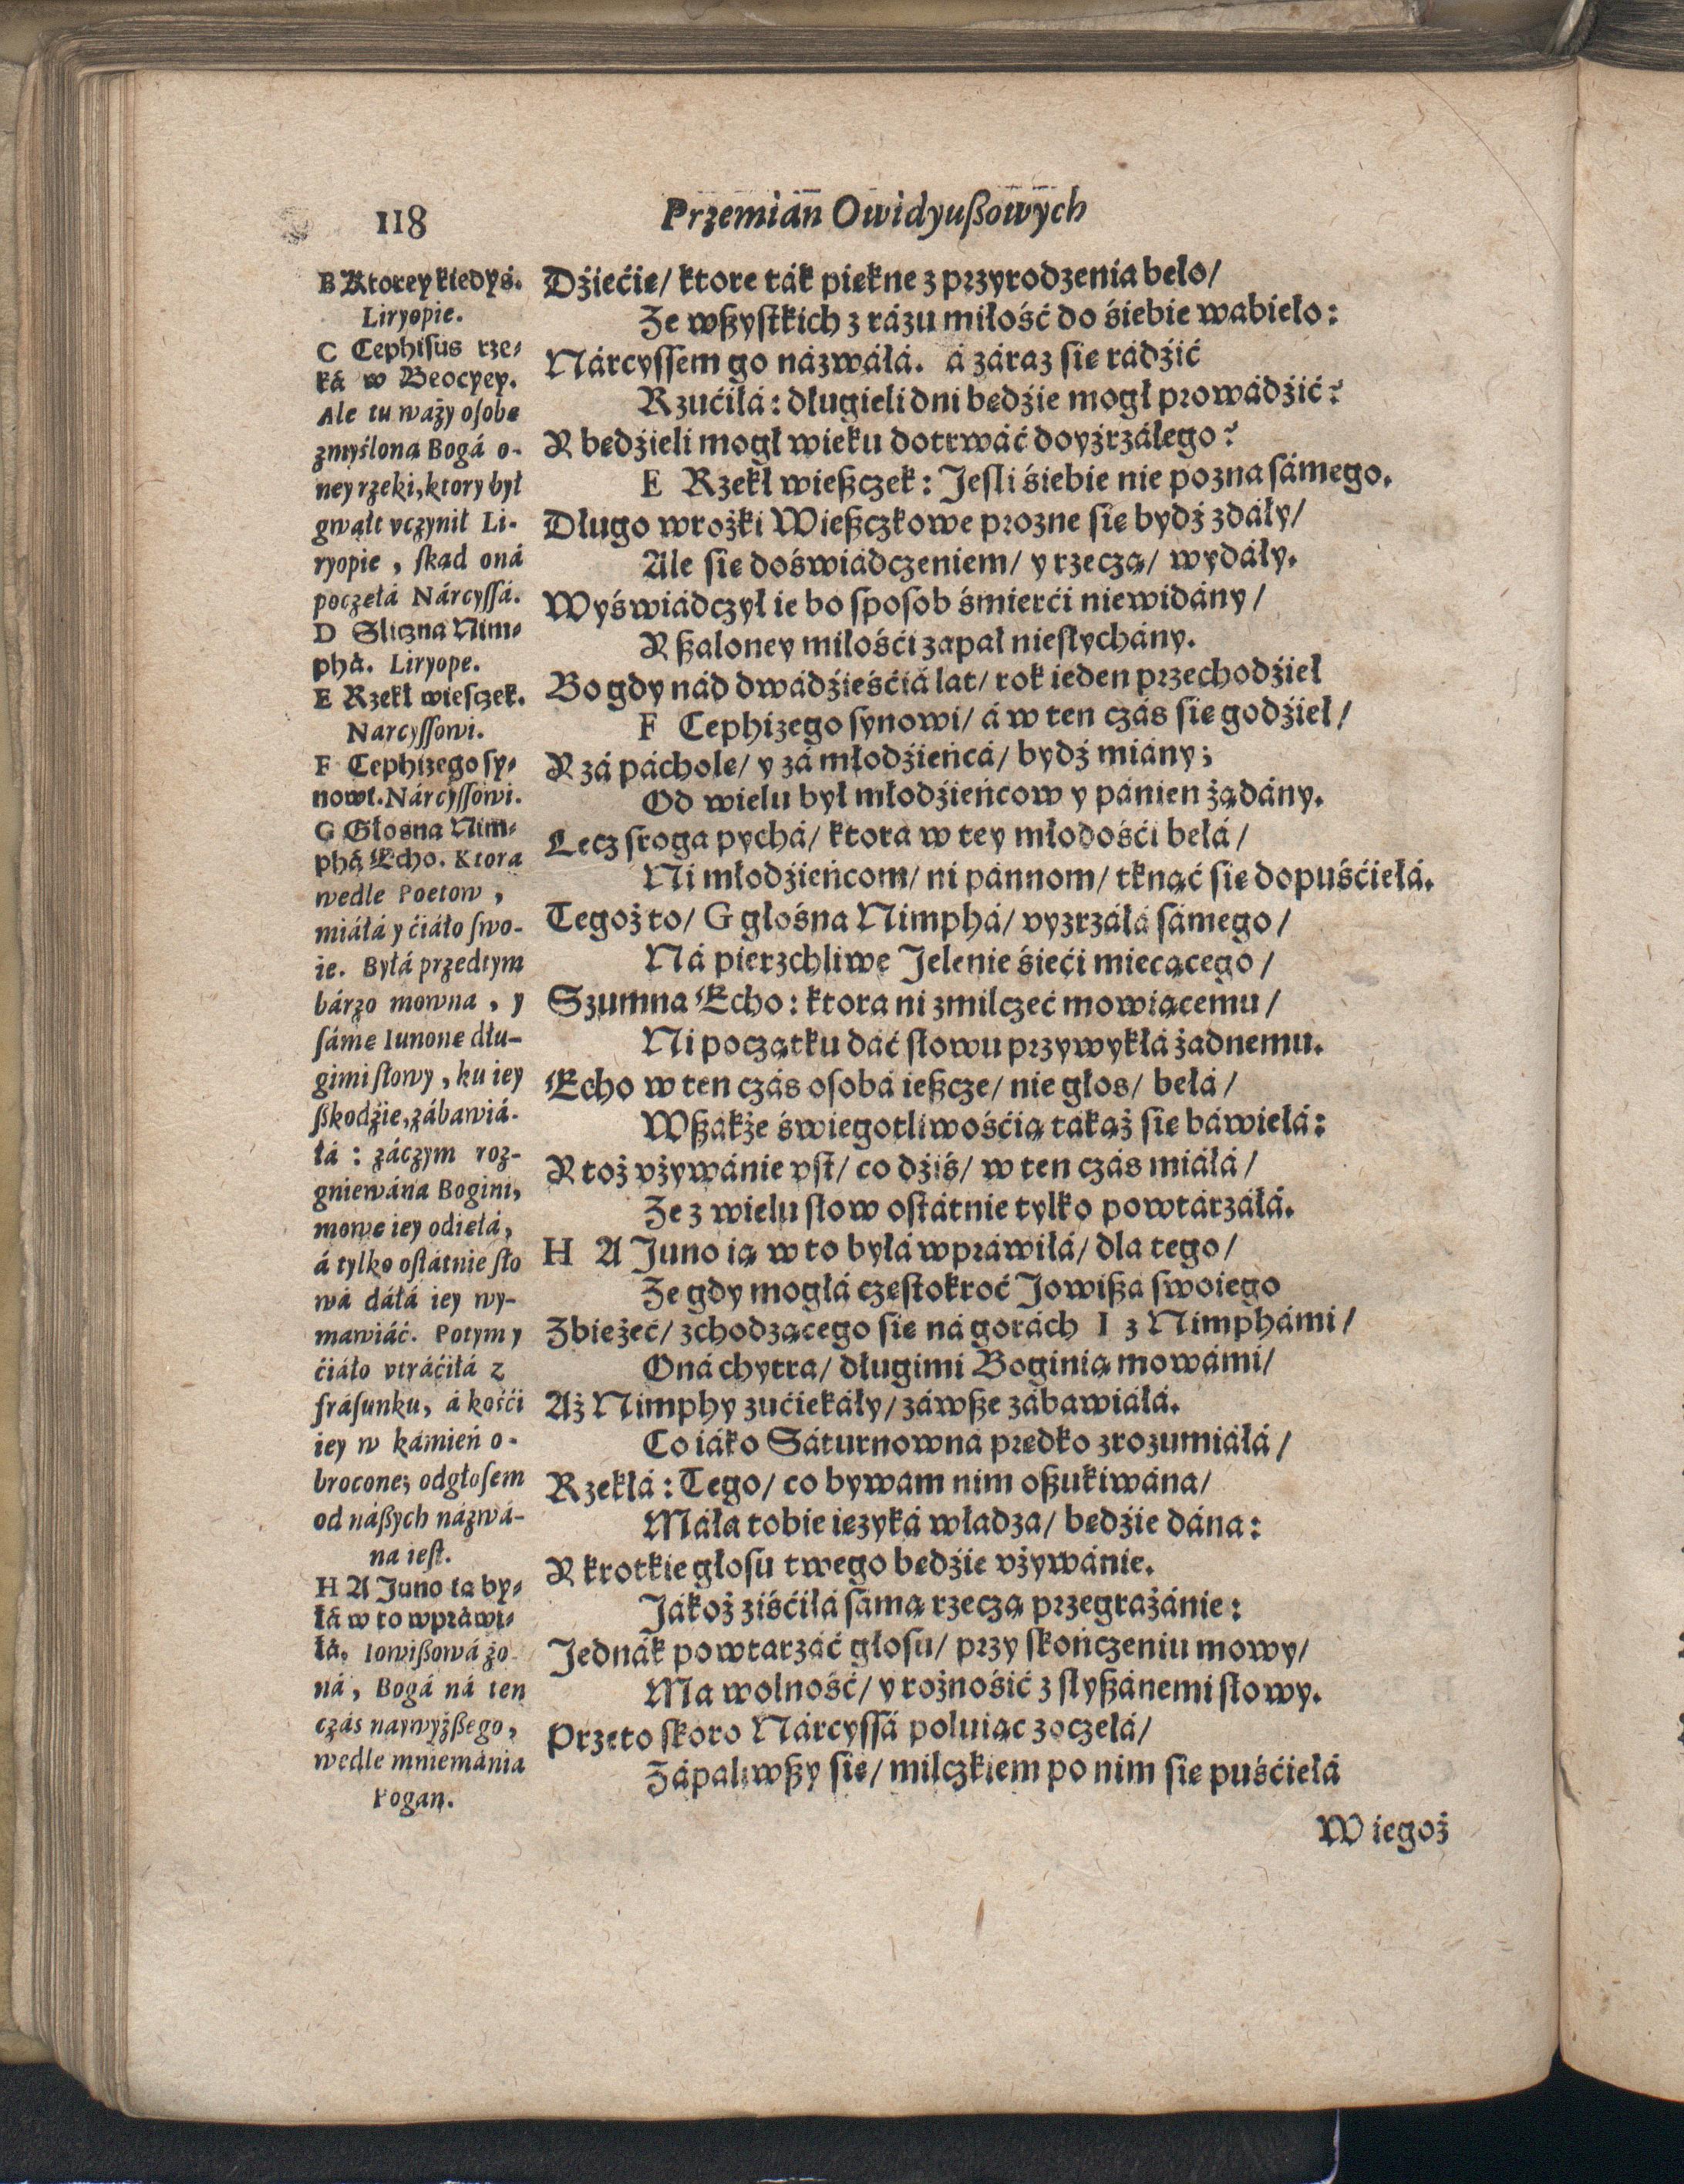 118
Przemian Owidyuszowych
B Ktorey kiedyś.
Liryopie.
C Cephisus rze-
ká w Beocyey.
Ale tu waży osobę
zmyśloną Bogá o-
ney rzeki, ktory był
gwałt vczynił Li-
ryopie, skąd oná
poczęłá Nárcyssá.
D Sliczna Nim-
phá. Liryope.
E Rzekł wiesczek.
Narcyssowi.
F Cephizego sy-
nowi. Nárcyssowi.
G Głosna Nim-
phá Echo. Ktora
wedle Poetow,
miáłá y ćiáło swo-
ie. Byłá przedtym
bárzo mowna, y
sámę Iunonę dłu-
gimi słowy, ku iey
szkodźie, zábawiá-
łá: záczym roz-
gniewána Bogini,
mowę iey odięłá,
á tylko ostátnie sło
wá dáłá iey wy-
mawiáć. Potym y
ćiáło vtráćiłá z
frásunku, á kośći
iey w kámień o-
brocone; odgłosem
od nászych názwá-
na iest.
H A Juno ią by-
łá w to wpráwi-
łá. Iowiszowá żo-
ná, Bogá ná ten
czás naywyższego,
wedle mniemánia
Pogan.
Dźiećię/ ktore ták piękne z przyrodzenia beło/
Że wszystkich z rázu miłość do śiebie wabieło:
Nárcyssem go názwáłá. á záraz się rádźić
Rzućiłá: długieli dni będźie mogł prowádźić?
A będźieli mogł wieku dotrwáć doyźrzáłego?
E Rzekł wieszczek: Jesli śiebie nie pozna sámego.
Długo wrożki Wieszczkowe prozne się bydź zdáły/
Ale się doświádczeniem/ y rzeczą/ wydáły.
Wyświádczył ie bo sposob śmierći niewidány/
A szaloney miłośći zapał niesłychány.
Bo gdy nád dwádźieśćiá lat/ rok ieden przechodźieł
F Cephizego synowi/ á w ten czás się godźieł/
A zá páchole/ y zá młodźieńcá/ bydź miány;
Od wielu był młodźieńcow y pánien żądány.
Lecz sroga pychá/ ktora w tey młodośći bełá/
Ni młodźieńcom/ ni pánnom/ tknąć się dopuśćiełá.
Tegoż to/ G głośna Nimphá/ vyzrzáłá sámego/
Ná pierzchliwe Jelenie śieći miecącego/
Szumna Echo: ktora ni zmilczeć mowiącemu/
Ni początku dáć słowu przywykłá żadnemu.
Echo w ten czás osobá ieszcze/ nie głos/ bełá/
Wszákże świegotliwośćią takąż się báwiełá:
A toż vżywánie vst/ co dźiś/ w ten czás miáłá/
Że z wielu słow ostátnie tylko powtarzáłá.
H A Juno ią w to byłá wpráwiłá/ dla tego/
Że gdy mogłá częstokroć Jowisza swoiego
Zbieżeć/ zchodzącego się ná gorách I z Nimphámi/
Oná chytra/ długimi Boginią mowámi/
Aż Nimphy zućiekáły/ záwsze zábawiáłá.
Co iáko Sáturnowná prędko zrozumiáłá/
Rzekłá: Tego/ co bywam nim oszukiwána/
Máła tobie ięzyká władza/ będźie dána:
A krotkie głosu twego będźie vżywánie.
Jákoż ziśćiłá sámą rzeczą przegrażánie:
Jednák powtarzáć głosu/ przy skończeniu mowy/
Ma wolność/ y rożnośić z słyszánemi słowy.
Przeto skoro Nárcyssá poluiąc zoczełá/
Zápaliwszy się/ milczkiem po nim się puśćiełá
W iegoż